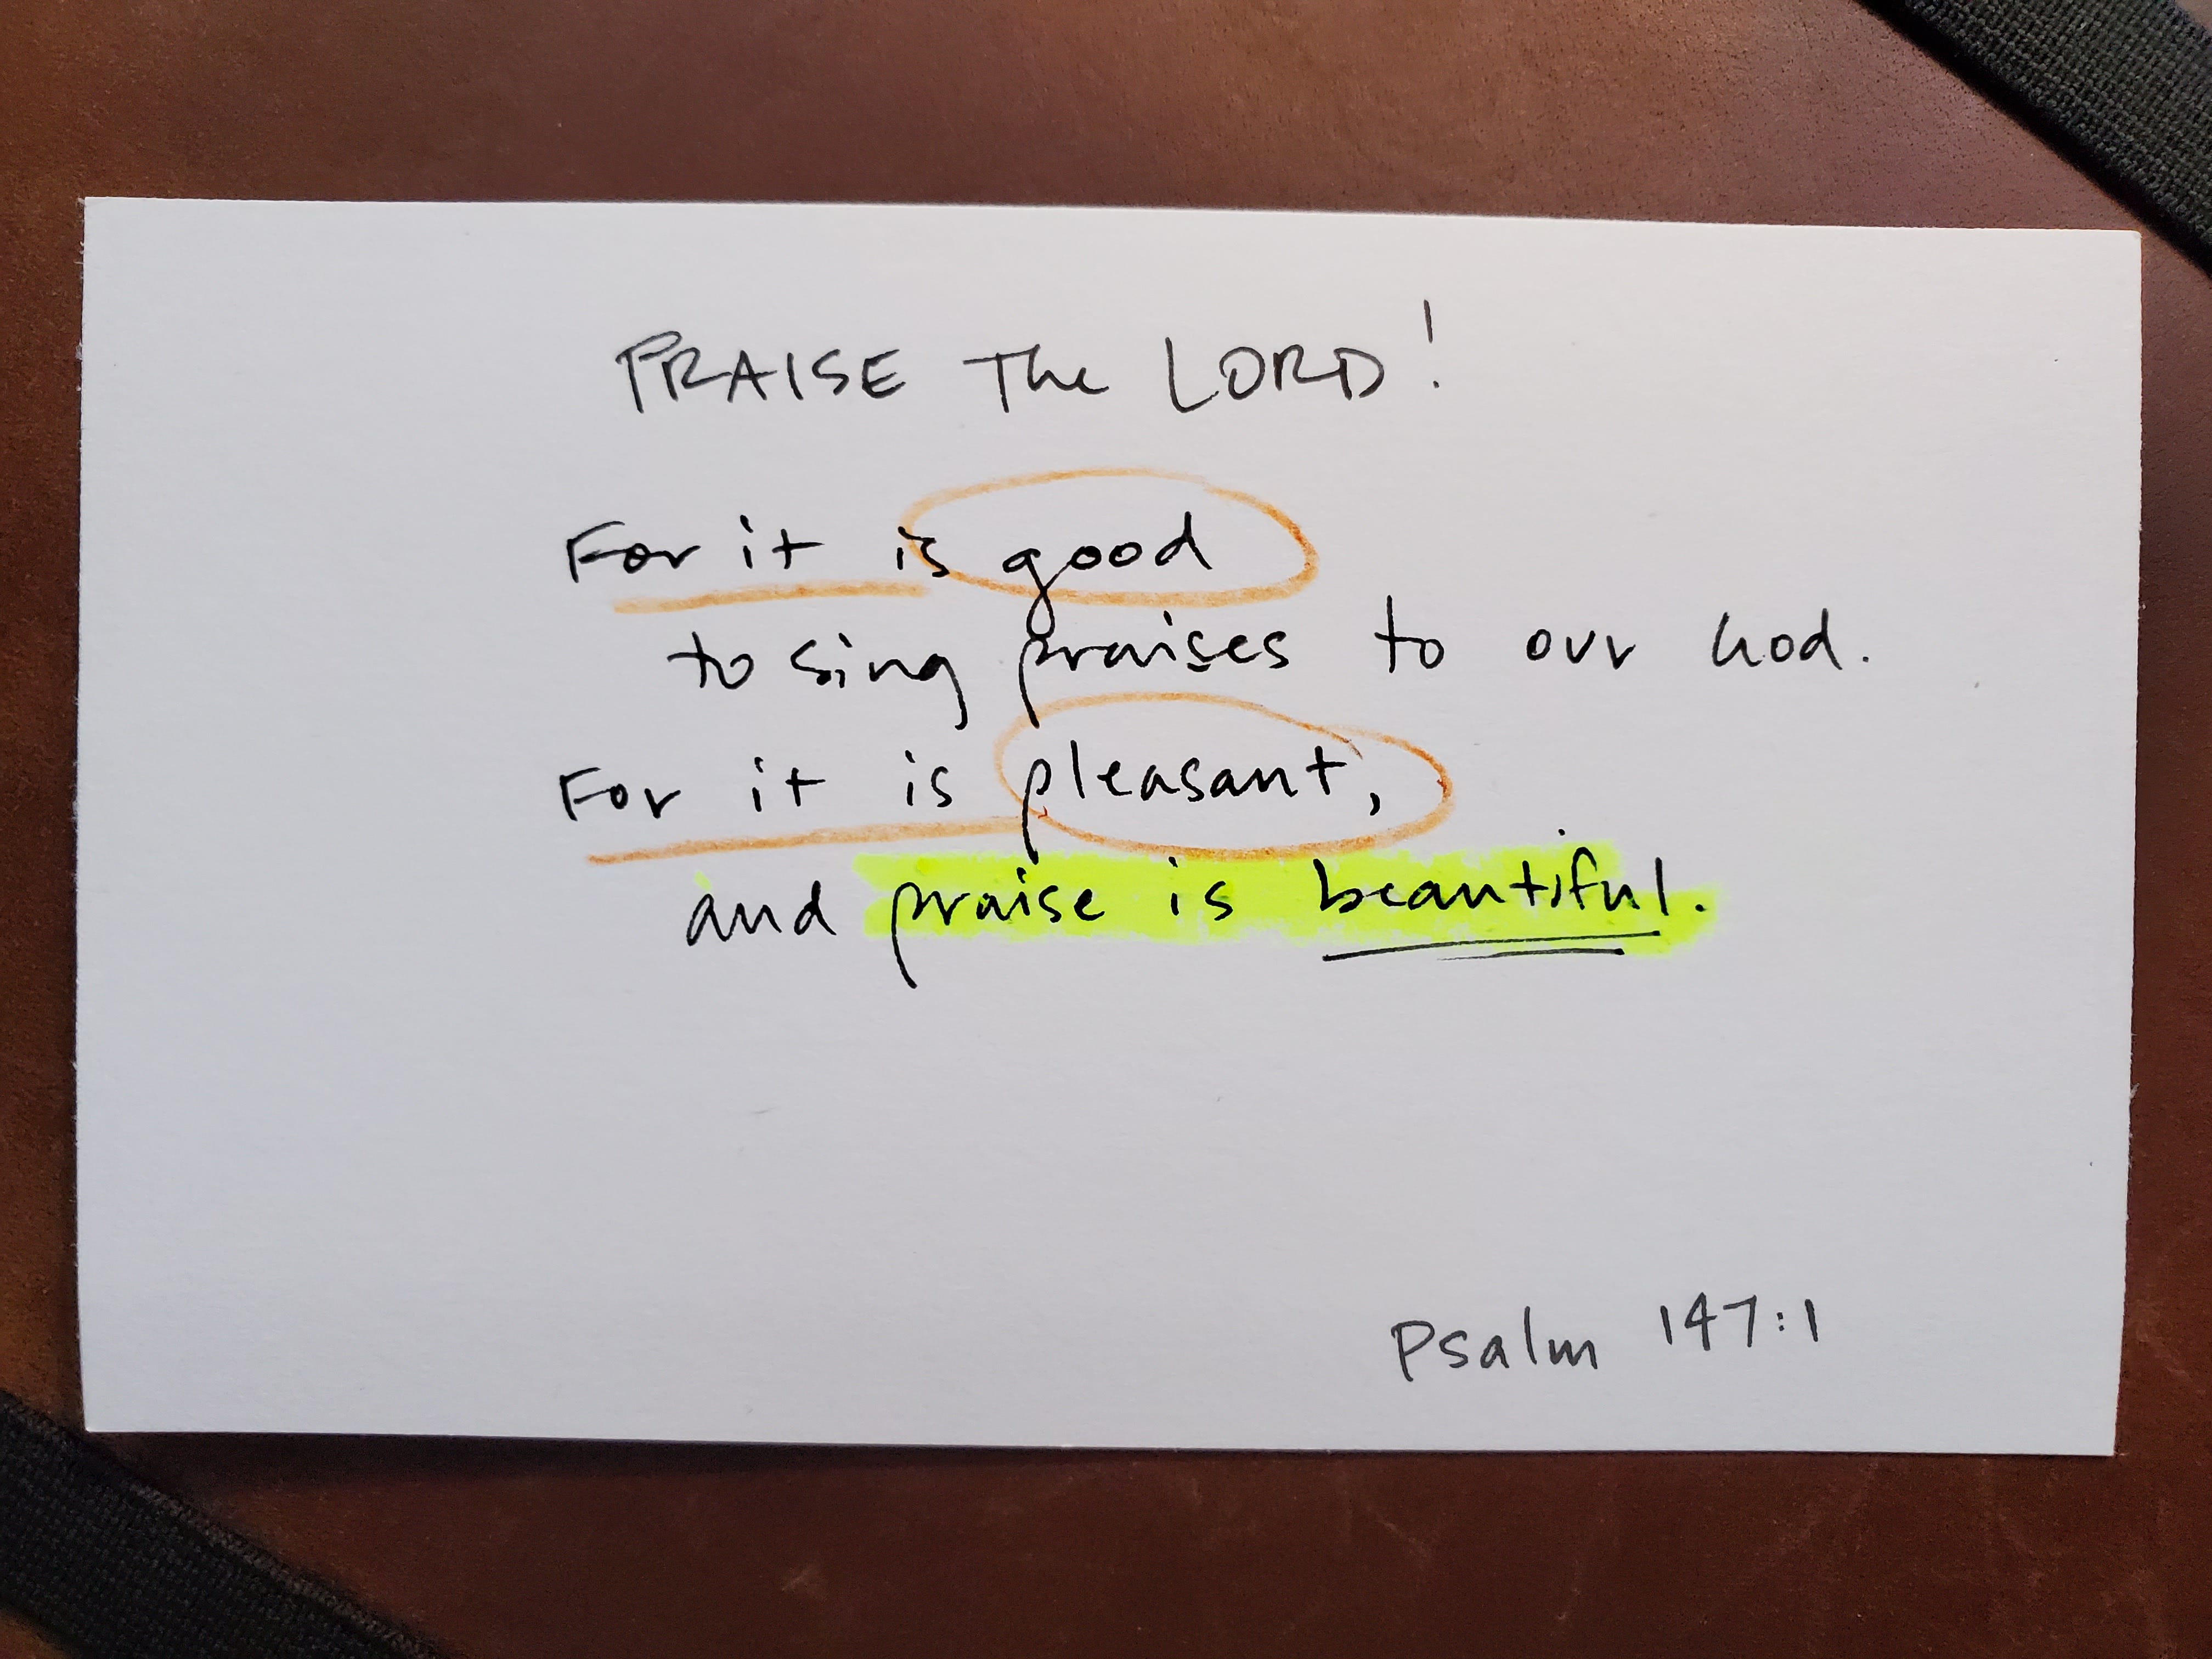 PRAISE The LORD!
For it is good
to sing praises to our God.
For it is pleasant,
and praise is beautiful.
Psalm 147:1